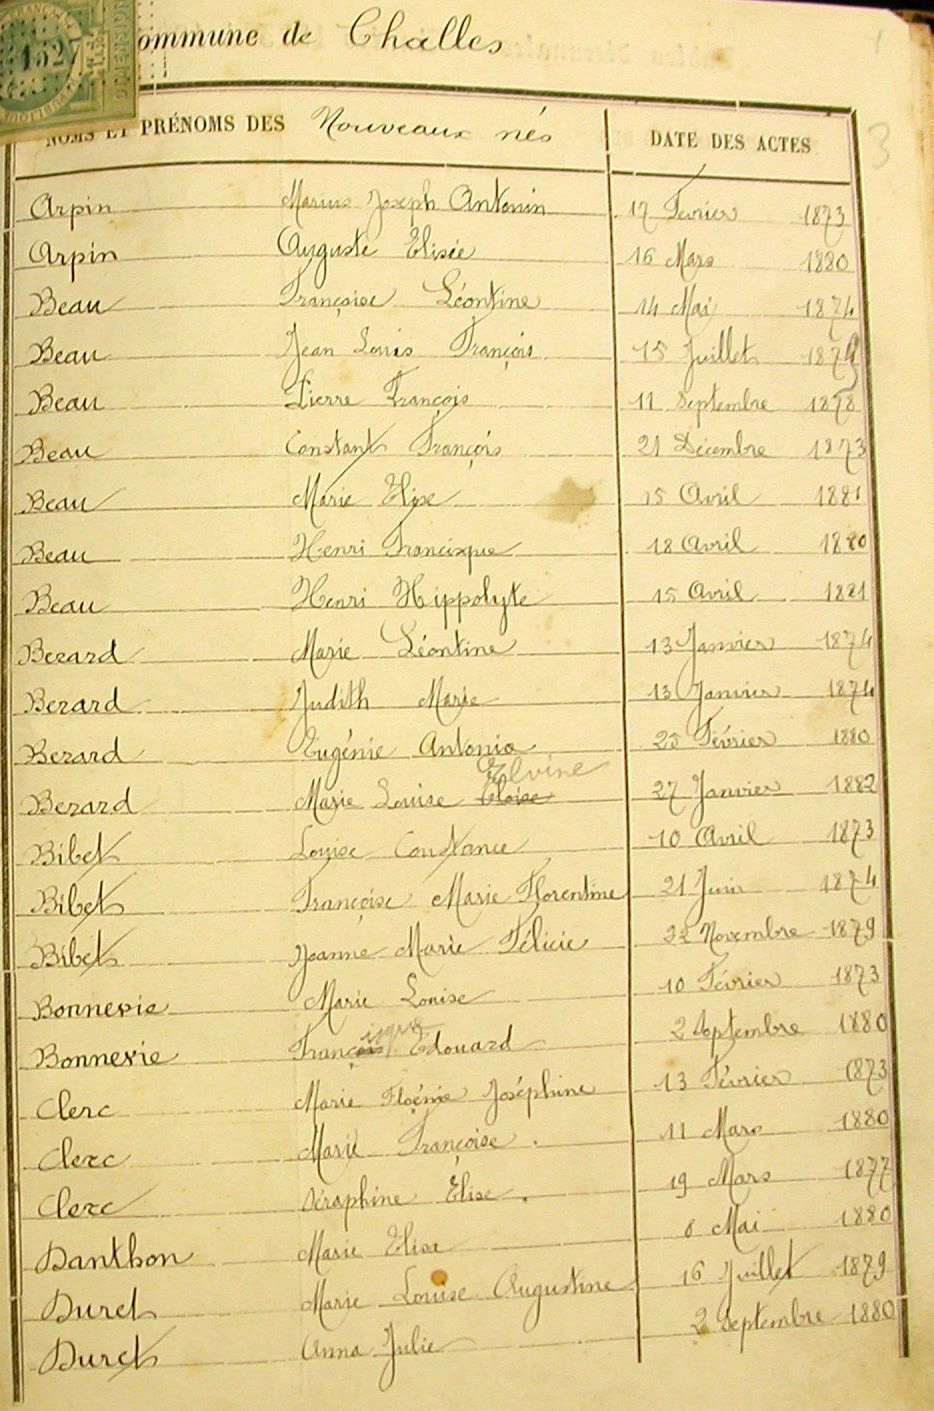 ommune de Challes
1527
DIMENSION
NOMS ET PRÉNOMS DES Nouveaux nés DATE DES ACTES
3
Arpin Marius Joseph Antonin 17 Février 1873
Arpin Auguste Elisée 16 Mars 1880
Beau Françoise Léontine 14 Mai 1874
Beau Jean Louis François 15 Juillet 1879
Beau Pierre François 11 Septembre 1878
Beau Constant François 21 Décembre 1873
Beau Marie Elise 15 Avril 1881
Beau Henri Francisque 18 Avril 1880
Beau Henri Hippolyte 15 Avril 1881
Berard Marie Léontine 13 Janvier 1874
Berard Judith Marie 13 Janvier 1874
Berard Eugénie Antonia 25 Février 1880
Elvine
Berard Marie Louise Eloise 27 Janvier 1882
Bibet Louise Constance 10 Avril 1873
Bibet Françoise Marie Florentine 21 Juin 1874
Bibet Jeanne Marie Félicie 22 Novembre 1879
Bonnevie Marie Louise 10 Février 1873
isque
Bonnevie François Edouard 2 Septembre 1880
Clerc Marie Noémie Joséphine 13 Février 1873
Clerc Marie Françoise 11 Mars 1880
Clerc Séraphine Elise 19 Mars 1877
Danthon Marie Elisa 8 Mai 1880
Duret Marie Louise Augustine 16 Juillet 1879
Duret Anna Julie 2 Septembre 1880